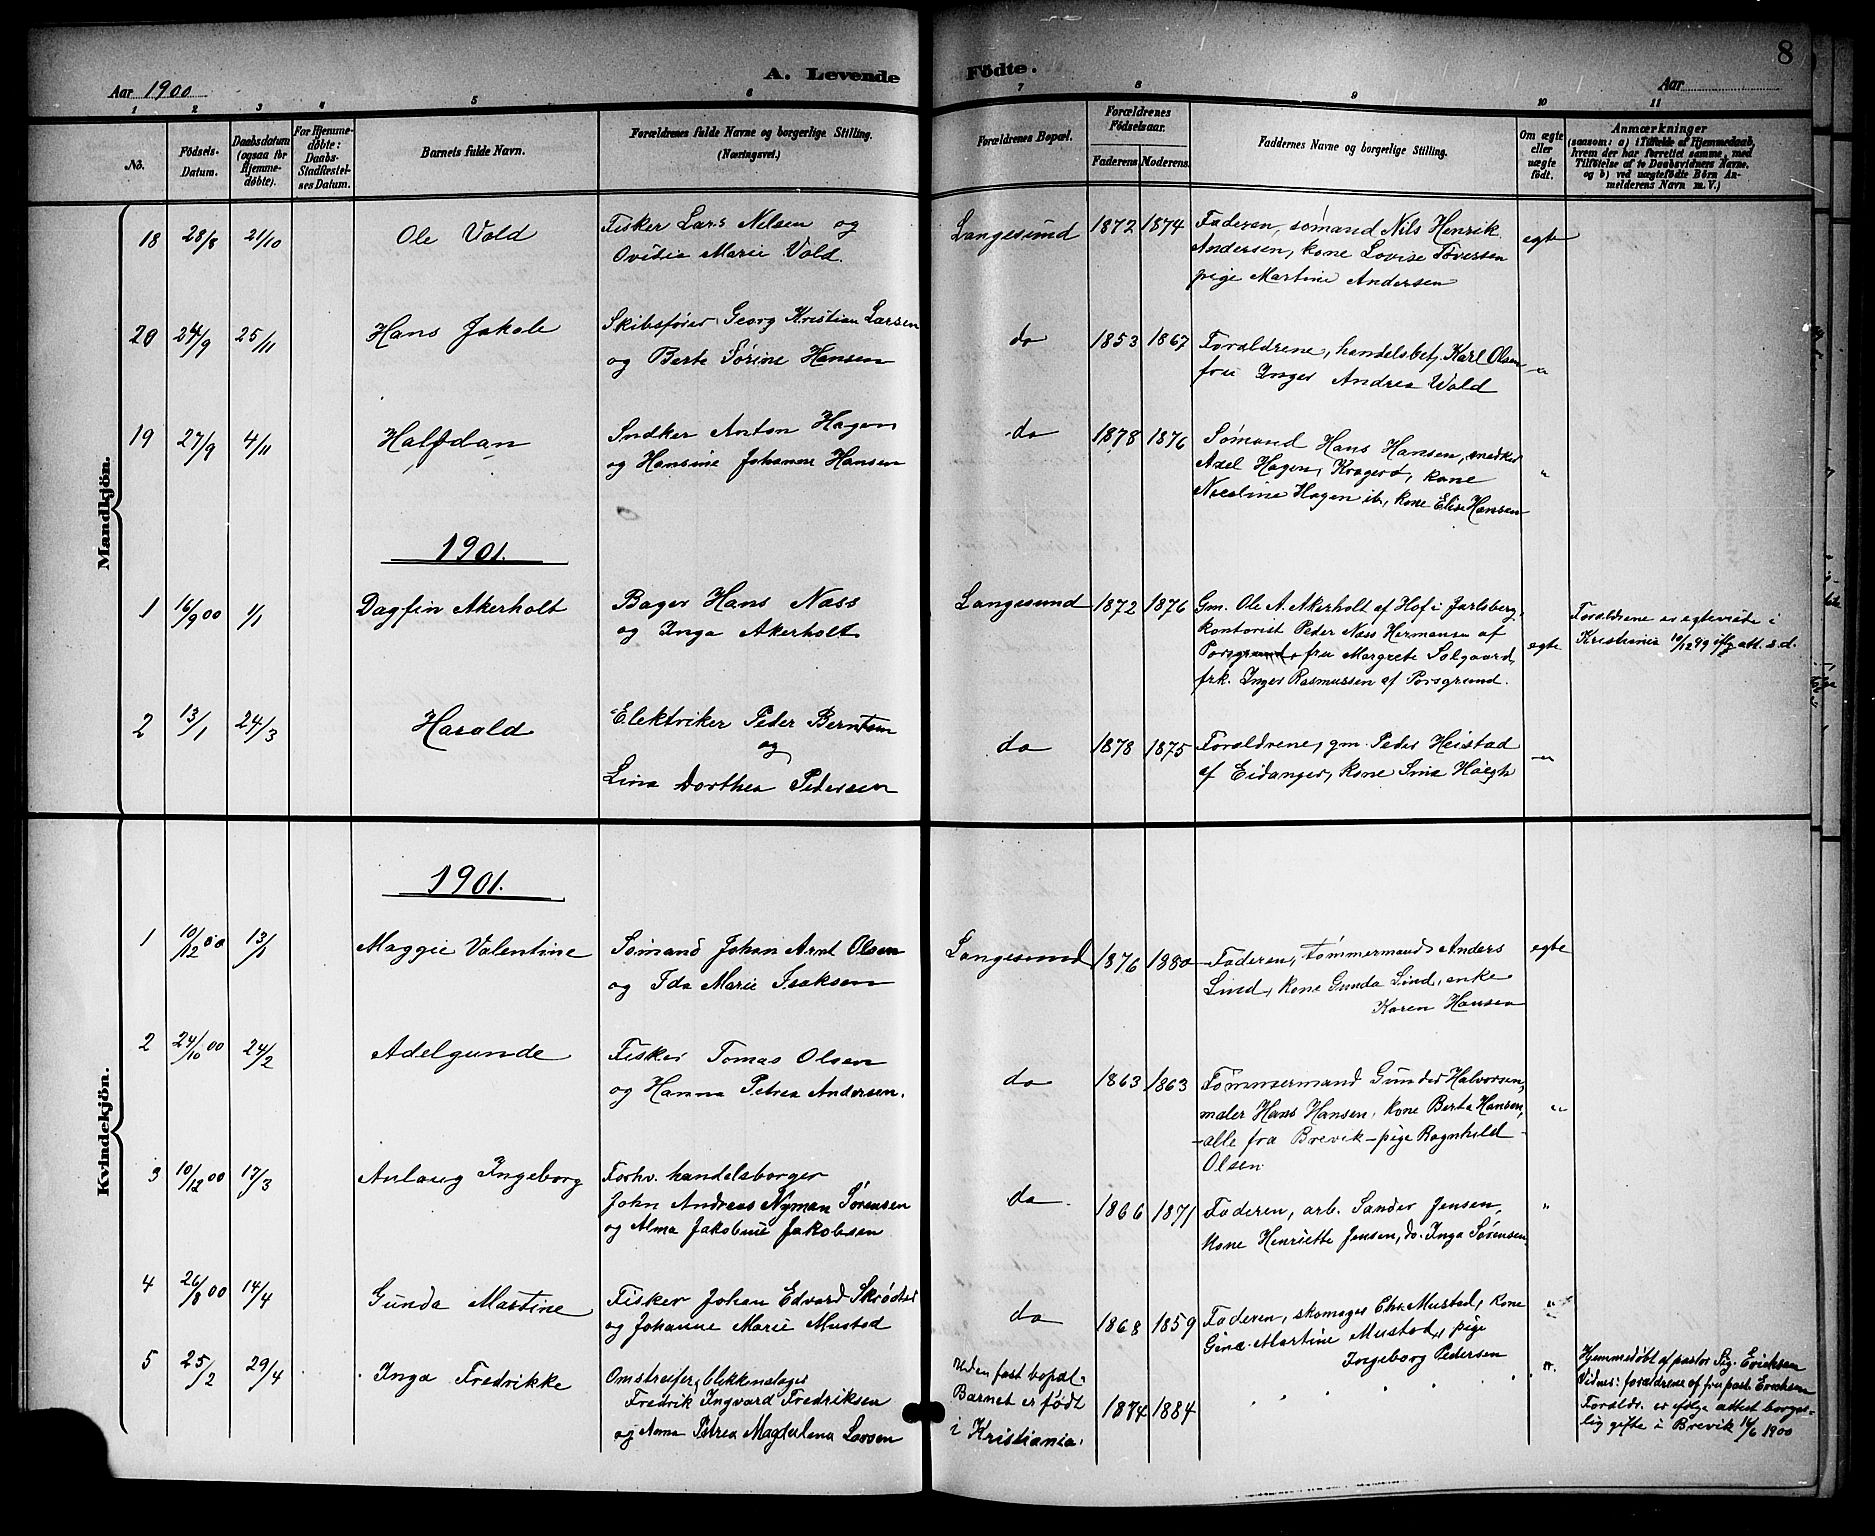 8
A. Levende Födte.
Aar 1900
Aar
1 2 3 4 5 6 7 8 9 10 11
No.
Födsels-Datum.
Daabsdatum (ogsaa for Hjemmedøbte).
For Hjemmedøbte: Daabs-Stadfæstelses Datum.
Barnets fulde Navn.
Forældrenes fulde Navne og borgerlige Stilling. (Næringsvei.)
Forældrenes Bopæl.
Forældrenes Födselsaar.
Faderens. Moderens.
Faddernes Navne og borgerlige Stilling.
Om ægte eller uægte födt.
Anmærkninger
(saasom: a) i Tilfælde af Hjemmedaab, hvem der har forrettet samme, med Tilföielse af to Daabsvidners Navne. og b) ved uægtefödte Börn Anmelderens Navn m. V.)
Mandkjön.
18 28/8 21/10 Ole Vold
Fisker Lars Nilsen og
Ovidia Marie Vold.
Langesund 1872 1874
Faderen, sømand Nils Henrik
Andersen, kone Lovise Tøversen
pige Martine Andersen
egte
20 24/9 25/11 Hans Jakob
Skibsfører Georg Kristian Larsen
og Berte Sørine Hansen
do 1853 1867
Forældrene, handelsbetj. Karl Olsen
fru Inger Andrea Wold
"
19 27/9 4/11 Halfdan
Snedker Anton Hagen
og Hansine Johanne Hansen
do 1878 1876
Sømand Hans Hansen, snedker
Axel Hagen, Kragerø, kone
Nicoline Hagen ib, kone Elise Hansen
"
1901.
1 16/9 00 1/1 Dagfin Akerholt
Bager Hans Næss
og Inga Akerholt
Langesund 1872 1876
Gm. Ole A. Akerholt af Hof i Jarlsberg,
kontorist Peder Næss Hermansen af
Porsgrund, fru Margrete Solgaard,
frk. Inger Rasmussen af Porsgrund.
egte
Forældrene er egteviede i
Kristiania 10/12 99 ifg att. s.d.
2 13/1 24/3 Harald
Elektriker Peder Berntsen
og
Lina Dorthea Pedersen
do 1878 1875
Forældrene, gm. Peder Heistad
af Eidanger, kone Sina Høegh
"
Kvindekjön.
1901.
1 10/12 00 13/1 Maggie Valentine
Sømand Johan Arnt Olsen
og Ida Marie Isaksen
Langesund 1876 1880
Faderen, tømmermand Anders
Lind, kone Gunda Lind, enke
Karen Hansen
egte
2 24/10 00 24/2 Adelgunde
Fisker Tomas Olsen
og Hanna Petrea Andersen.
do 1863 1863
Tømmermand Gunder Halvorsen,
maler Hans Hansen, kone Berta Hansen,
-alle fra Brevik - pige Ragnhild
Olsen
"
3 10/12 00 17/3 Aslaug Ingeborg
Forhv. handelsborger
John Andreas Nyman Sørensen
og Alma Jakobine Jakobsen
do 1866 1871
Faderen, arb. Sander Jensen,
kone Henriette Jensen, do. Inga Sørensen
"
4 26/8 00 14/4 Gunda Martine
Fisker Johan Edvard Skrødtsv
og Johanne Marie Mustad
do 1868 1859
Faderen, skomager Chr. Mustad, kone
Gina Martine Mustad, pige
Ingeborg Pedersen
"
5 25/2 29/4 Inga Fredrikke
Omstreifer, blikkenslager
Fredrik Ingvard Fredriksen
og Anna Petrea Magdalena Larsen
Uden fast bopæl.
Barnet er født
i Kristiania.
1874 1884
"
Hjemmedøbt af pastor Sig. Erichsen
Vidner: forældrene af fru past. Erichsen
Forældr. er ifølge attest borger-
lig gifte i Brevik 16/6 1900